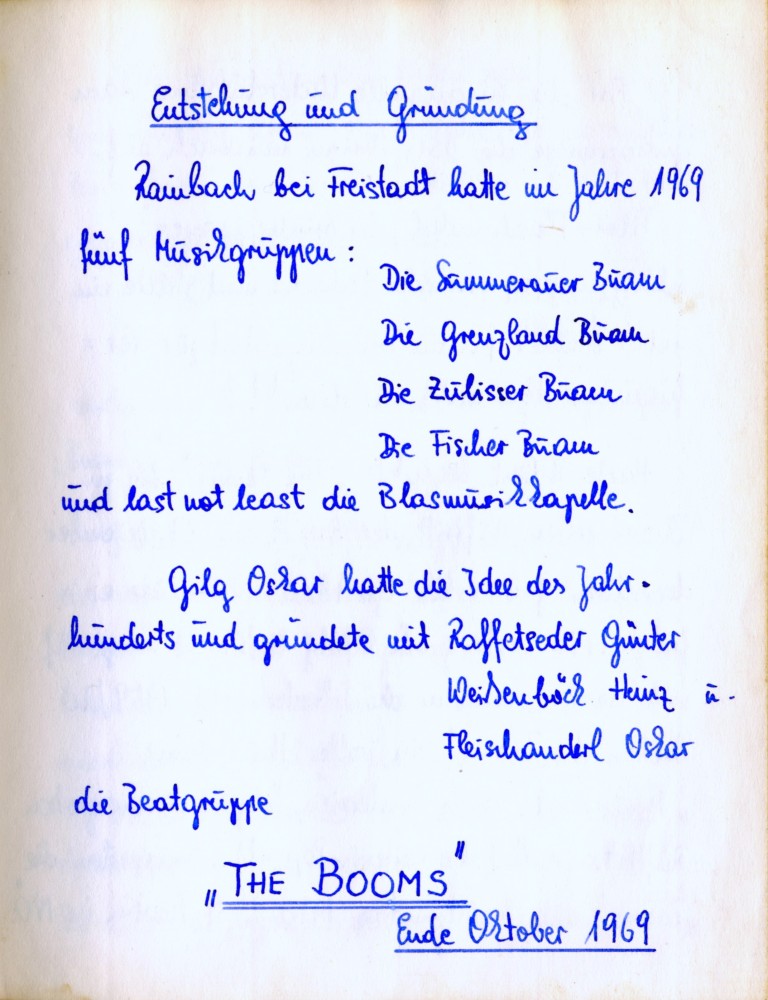 Entstehung und Gründung
Rainbach bei Freistadt hatte im Jahre 1969
fünf Musikgruppen :
Die Summerauer Buam
Die Grenzland Buam
Die Zulisser Buam
Die Fischer Buam
und last not least die Blasmusikkapelle.
Gilg Oskar hatte die Idee des Jahr-
hunderts und gründete mit Raffetseder Günter
Weißenböck Heinz u.
Fleischanderl Oskar
die Beatgruppe
„THE BOOMS"
Ende Oktober 1969